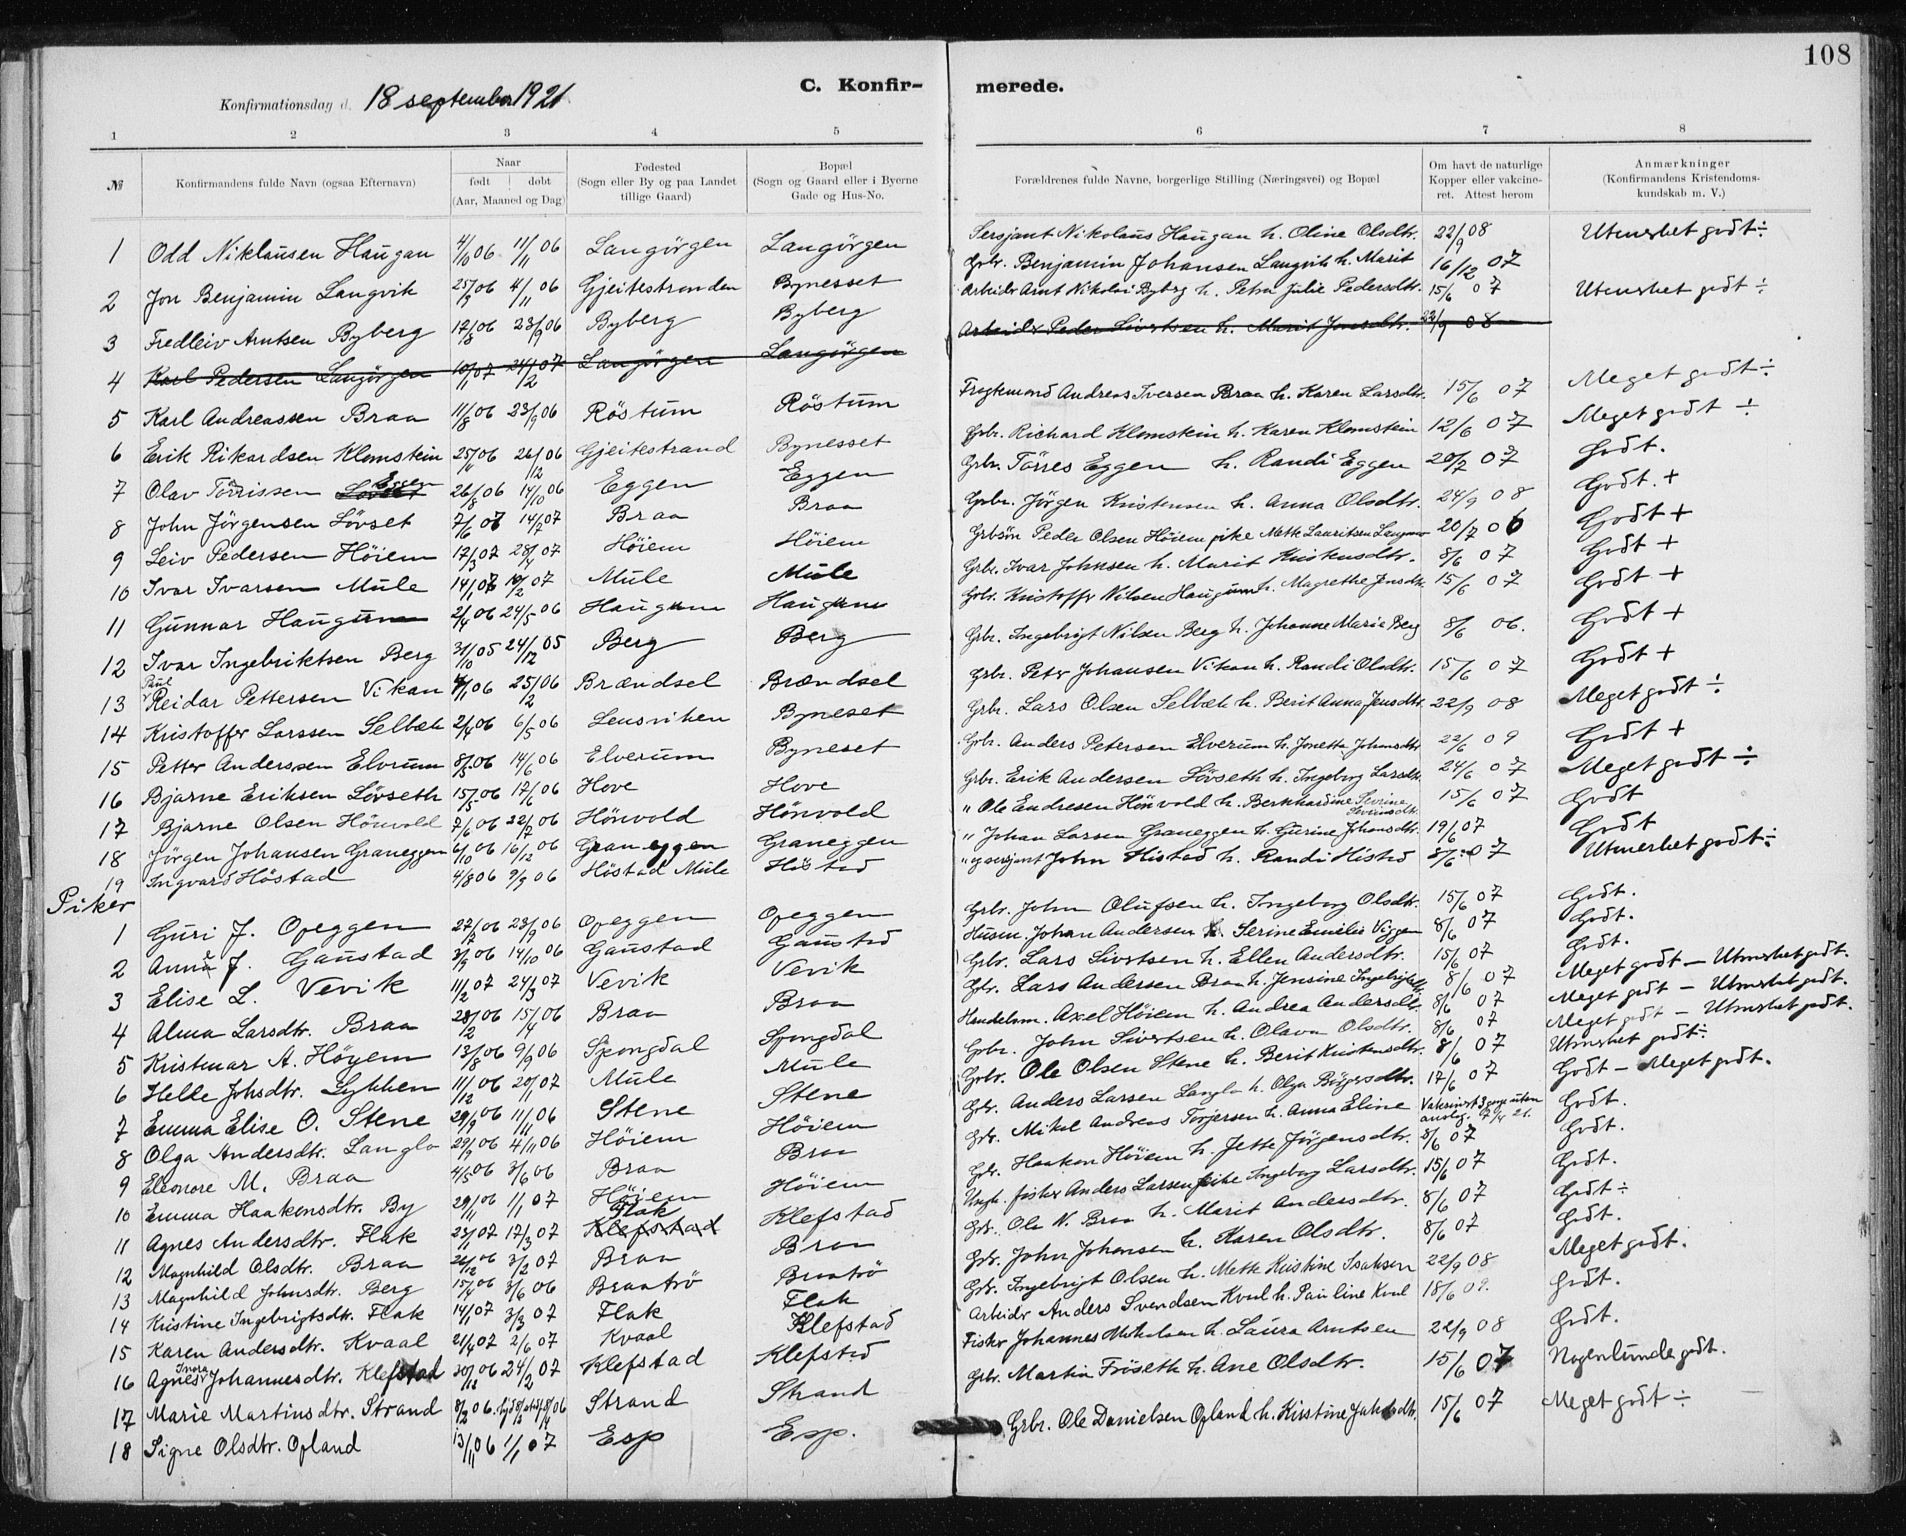 108
C. Konfir-
merede.
Konfirmationsdag d. 18 september 1921
1 2 3 4 5 6 7 8
№
Konfirmandens fulde Navn (ogsaa Efternavn)
Naar
født | døbt
(Aar, Maaned og Dag)
Fødested
(Sogn eller By og paa Landet
tillige Gaard)
Bopæl
(Sogn og Gaard eller i Byerne
Gade og Hus-No.
Forældrenes fulde Navne, borgerlige Stilling (Næringsvei) og Bopæl
Om havt de naturlige
Kopper eller vakcine-
ret. Attest herom
Anmærkninger
(Konfirmandens Kristendoms-
kundskab m. V.)
1 Odd Niklausen Haugan 4/10 06 11/11 06 Langörgen Langörgen Sersjant Nikolaus Haugan h. Oline Olsdtr. 22/9 08 Utmerket godt ÷
2 Jon Benjamin Langvik 25/9 06 4/11 06 Gjeitestranden Bynesset Grbr. Benjamin Johansen Langvik h. Marit 16/12 07
3 Fredleiv Arntsen Byberg 17/8 06 23/9 06 Byberg Byberg Arbeider Arnt Nikolai Byberg h. Petra Julie Pedersdtr. 15/6 07 Utmerket godt ÷
4 Karl Pedersen Langörgen 10/1 07 24/2 07 Langörgen Langörgen Arbeider Peder Sivertsen h. Marit Jonsdtr. 22/9 08
5 Karl Andreassen Braa 11/8 06 23/9 06 Röstum Röstum Fragtemand Andreas Iversen Braa h. Karen Larsdtr. 15/6 07 Meget godt ÷
6 Erik Rikardsen Klemstein 25/11 06 26/12 06 Gjeitestrand Bynesset Grbr. Richard Klemstein h. Karen Klemstein 12/6 07 Meget godt ÷
7 Olav Torrissen Lövset Eggen 26/8 06 14/10 06 Eggen Eggen Grbr. Törres Eggen h. Randi Eggen 20/7 07 Godt.
8 John Jörgensen Lövset 7/6 07 14/7 07 Braa Braa Grbr. Jörgen Kristensen h. Anna Olsdtr. 24/9 08 Godt. +
9 Leiv Pedersen Höiem 17/3 07 28/4 07 Höiem Höiem Grbsön Peder Olsen Höiem pike Mette Lauritsen 20/7 06 Godt +
10 Ivar Ivarsen Mule 14/1 07 10/2 07 Mule Mule Grbr. Ivar Johnsen h. Marit Kristensdtr. 8/6 07 Godt +
11 Gunnar Haugum 2/4 06 24/5 06 Haugum Haugum Grbr. Kristoffer Nilsen Haugum h. Magrethe Jensdtr. 15/6 07 Godt +
12 Ivar Ingebriktsen Berg 31/10 05 24/12 05 Berg Berg Grbr. Ingebrigt Nilsen Berg h. Johanne Marie Berg 8/6 06. Godt +
13 Paul Reidar Pettersen Vikan 4/1 06 25/2 06 Brændsel Brændsel Grbr. Peter Johansen Vikan h. Randi Olsdtr. 15/6 07 Godt +
14 Kristoffer Larssen Selbæk 2/4 06 6/5 06 Lensviken Byneset Grbr. Lars Olsen Selbæk h. Berit Anna Jensdtr. 22/9 08 Meget godt ÷
15 Petter Anderssen Elvrum 8/5 06 14/6 06 Elverum Byneset Grbr. Anders Petersen Elverum h. Jonetta Johnsdtr 22/6 09 Godt +
16 Bjarne Eriksen Lövseth 15/5 06 17/6 06 Hove Hove Grbr. Erik Andersen Lövseth h. Ingeborg Larsdtr. 24/6 07 Meget godt ÷
17 Bjarne Olsen Hönvold 7/6 06 22/7 06 Hönvold Hönvold " Ole Endresen Hönvold h. Berkhardine Sevrine Sivertsdtr. 15/6 07 Godt
18 Jörgen Johansen Graneggen 6/10 06 16/12 06 Graneggen Graneggen " Johan Larsen Graneggen h. Gurine Johnsdtr. 19/6 07 Godt
19 Ingvard Höstad 4/8 06 9/9 06 Höstad Mule Höstad " og sersjant John Höstad h. Randi Höstad 8/6 07 Utmerket godt ÷
Piker
1 Guri J. Opeggen 27/7 06 23/9 06 Opeggen Opeggen Grbr. John Olufsen h. Ingeborg Olsdtr. 15/6 07 Godt.
2 Anna J. Gaustad 3/9 06 14/10 06 Gaustad Gaustad Husm. Johan Andersen h. Serine Emilie Viggen 8/6 07 Godt.
3 Elise L. Vevik 11/2 07 24/3 07 Vevik Vevik Grbr. Lars Sivertsen h. Ellen Andersdtr. 15/6 07 Godt.
4 Alma Larsdtr. Braa 28/2 06 15/4 06 Braa Braa Grbr. Lars Andersen Braa h. Jensine Ingebrigtsdtr. 8/6 07 Meget godt – Utmerket godt.
5 Kristmar A. Höyem 13/8 06 9/9 06 Spongdal Spongdal Handelsm. Axel Höiem h. Andrea Andersdtr. 8/6 07 Meget godt – Utmerket godt.
6 Helle Johsdtr. Lykken 11/12 06 20/1 07 Mule Mule Grbr. John Sivertsen h. Olava Olsdtr. 8/6 07 Meget godt – Utmerket godt.
7 Emma Elise O. Stene 29/9 06 11/11 06 Stene Stene Grbr. Ole Olsen Stene h. Berit Kristensdtr. 8/6 07 Utmerket godt ÷
8 Olga Andersdtr. Langlo 29/9 06 4/11 06 Höiem Höiem Grbr. Anders Larsen Langlo h. Olga Börgersdtr. 17/6 07 Godt – Meget godt.
9 Eleonore M. Braa 4/5 06 3/6 06 Braa Braa Grbr. Mikal Andreas Torjersen h. Anna Eline Vaksinert 3 gange uten anslag 7/4 21. Godt.
10 Emma Haakensdtr. By 29/11 06 1/1 07 Höiem Höiem Grbr. Haakon Höiem h. Jette Jörgensdtr. 8/6 07 Godt.
11 Agnes Andersdtr. Flak 23/1 07 17/3 07 Flak Klefstad Klefstad Ungk. fisker Anders Larsen pike Ingeborg Larsdtr. 15/6 07 Godt.
12 Magnhild Olsdtr. Braa 26/12 06 3/2 07 Braa Braa Grbr. Ole N. Braa h. Marit Andersdtr. 8/6 07 Godt ÷
13 Magnhild Johnsdtr. Berg 15/4 06 3/6 06 Braatrö Braatrö Grbr. John Johansen h. Karen Olsdtr. 8/6 07 Godt.
14 Kristine Ingebrigtsdtr. Flak 14/1 07 3/3 07 Flak Flak Grbr. Ingebrigt Olsen h. Mette Kristine Isaksen 22/9 08 Meget godt.
15 Karen Andersdtr. Kvaal 21/4 07 2/6 07 Kvaal Klefstad Arbeider Anders Svendsen Kvaal h. Pauline Kvaal 18/6 09. Godt.
16 Agnes Inora Johannesdtr. Klefstad 30/12 06 24/2 07 Klefstad Klefstad Fisker Johannes Mikalsen h. Laura Arntsen 22/9 08 Godt.
17 Marie Martinsdtr. Strand 8/2 06. Strand Strand Grbr. Martin Fröseth h. Ane Olsdtr. 15/6 07 Nogenlunde godt.
18 Signe Olsdtr. Opland 13/11 06 1/1 07 Esp Esp. Grbr. Ole Danielsen Opland h. Kirstine Jakobsdtr. 15/6 07 Meget godt ÷